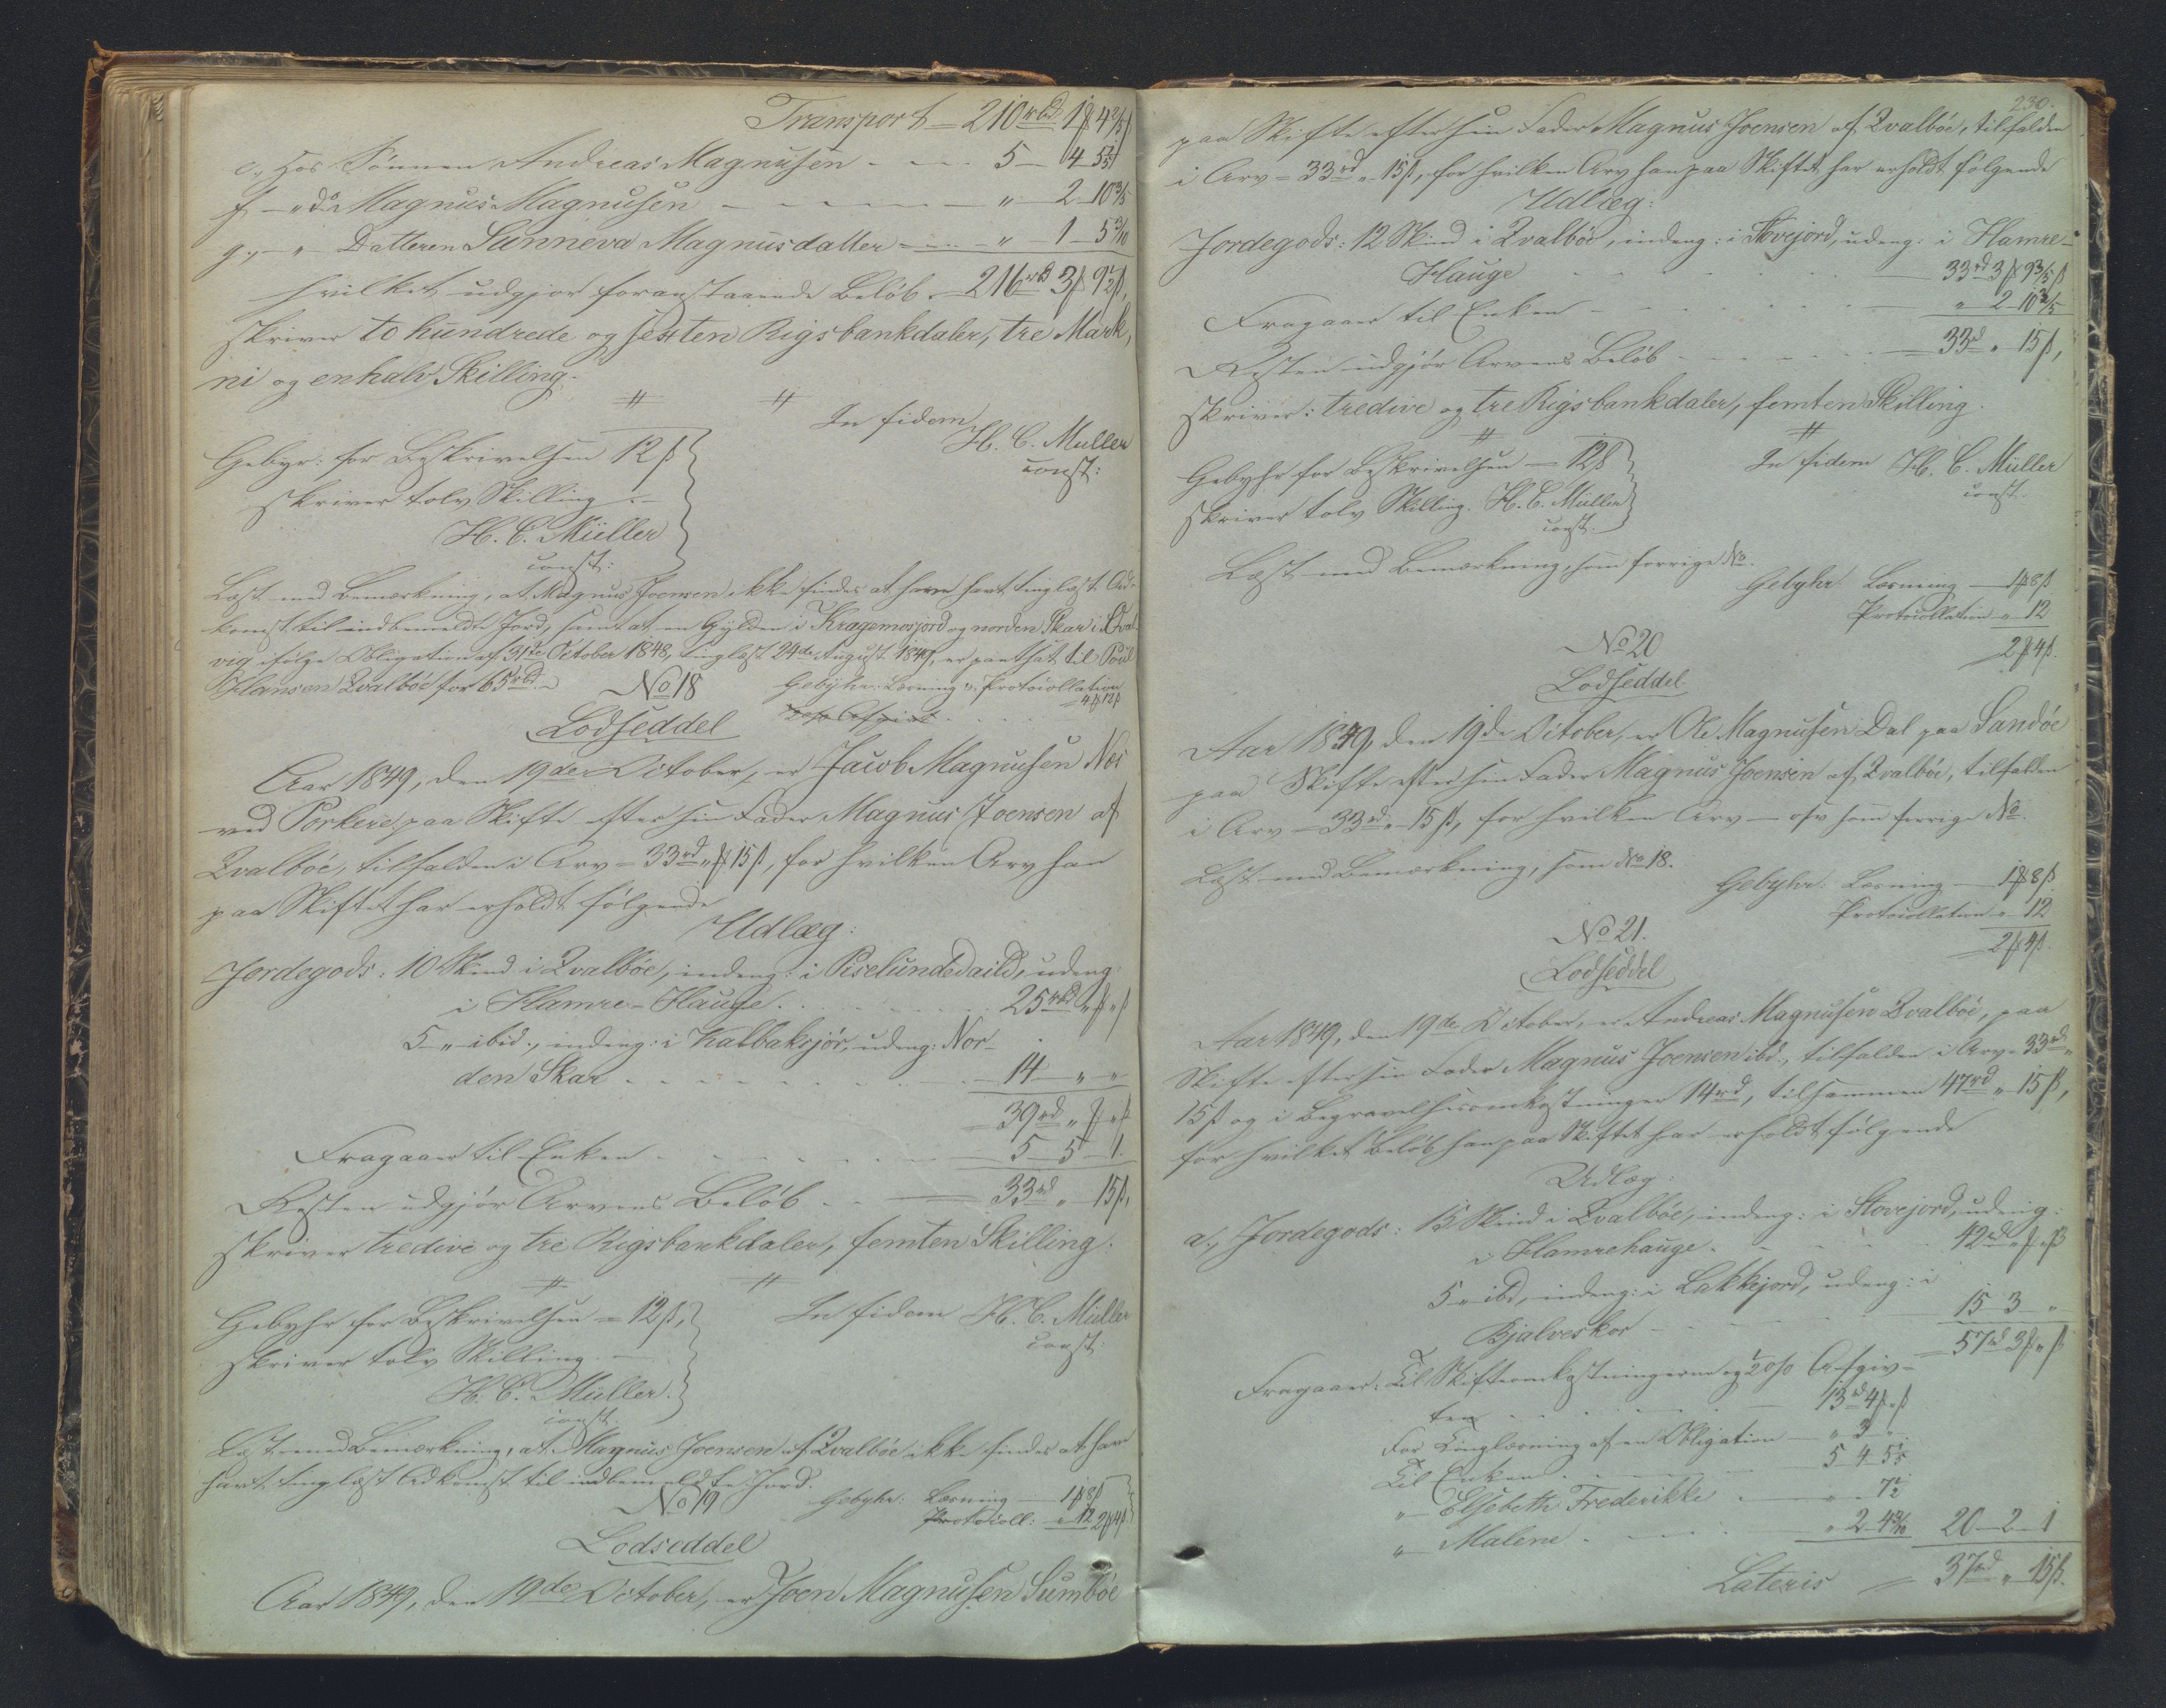 Transport = 210 rbd 1 ₻ 4 2/5 ß
e., Hos Sønnen Andreas Magnusen - - - 5 - 4 - 5 1/5
f., - " do Magnus Magnusen - - - - - " - 2 - 10 3/5
g., - " - Datteren Sunneva Magnusdatter - - - " - 1 - 5 3/10
hvilket udgjør foranstaaende Beløb - 216 rbd 3 ₻ 9 1/2 ß,
skriver to hundrede og sexten Rigsbankdaler, tre Mark,
ni og en halv Skilling.
In fidem
H. C. Müller
const:
Gebyr: for Beskrivelsen 12 ß
skriver tolv Skilling. -
H. C. Müller
const:
Læst med Bemærkning, at Magnus Joensen ikke findes at have havt tinglæst Ad-
komst til indbemeldte Jord, samt at en Gylden i Kragemosjord og norden Skar i Qval-
vig ifølge Obligation af 31te October 1848, tinglæst 24de August 1849, er pantsat til Poul
Hansen Qvalböe for 65 rbd.
Gebyhr: Læsning & Protocollation
4 ₻ 12 ß
No 18
Lodseddel
Aar 1849, den 19de October, er Jacob Magnusen Nes
ved Porkere paa Skifte efter sin Fader Magnus Joensen af
Qvalböe, tilfalden i Arv = 33 rd " ₻ 15 ß, for hvilken Arv han
paa Skiftet har erholdt følgende
Udlæg:
Jordegods: 10 Skind i Qvalböe, indeng: i Piselundsdaild, udeng:
i Hamre-Hauge. . . . . . . 25 rbd " ₻ " ß
5 - " ibid., indeng: i Kalbaksjør, udeng: Nor-
den Skar . . . . . . . 14 - " - "
= 39 rd " ₻ " ß
Fragaaer til Enken . . . . . 5 - 5 - 1.
Resten udgjør Arvens Beløb - - = 33 rd " 15 ß,
skriver tredive og tre Rigsbankdaler, femten Skilling.
Gebyhr for Beskrivelsen = 12 ß,
skriver tolv Skilling. -
H. C. Müller.
const.
In fidem H. C. Müller
const:
Læst med Bemærkning, at Magnus Joensen af Qvalböe ikke findes at have
havt tinglæst Adkomst til indbemeldte Jord.
Gebyhr: Læsning - 1 ₻ 8 ß
Protocoll: - " 12 2 ₻ 4 ß
No 19
Lodseddel
Aar 1849, den 19de October, er Joen Magnusen Sumböe
230.
paa Skifte efter sin Fader Magnus Joensen af Qvalböe, tilfalden
i Arv = 33 rd " 15 ß, for hvilken Arv han paa Skiftet har erholdt følgende
Udlæg:
Jordegods: 12 Skind i Qvalböe, indeng: i Stovejord, udeng: i Hamre-
Hauge - - - - - - 33 rd 3 ₻ 9 3/5 ß
Fragaaer til Enken - - - - - " 2 - 10 3/5
Resten udgjør Arvens Beløb - - - - = 33 rd " 15 ß,
skriver: tredive og tre Rigsbankdaler, femten Skilling.
Gebyhr for Beskrivelsen - 12 ß
skriver tolv Skilling. H. C. Müller
const.
In fidem H. C. Müller
const.
Læst med Bemærkning, som forrige No.
Gebyhr: Læsning - 1 ₻ 8 ß
Protocollation " 12
2 ₻ 4 ß.
No 20
Lodseddel
Aar 1849, den 19de October, er Ole Magnusen Dal paa Sandöe
paa Skifte efter sin Fader Magnus Joensen af Qvalböe, tilfalden
i Arv = 33 rd " 15 ß, for hvilken Arv - osv som forrige No.
Læst med Bemærkning, som No 18.
Gebyhr: Læsning - 1 ₻ 8 ß
Protocollation " 12
2 ₻ 4 ß.
No 21.
Lodseddel
Aar 1849, den 19de October, er Andreas Magnusen Qvalböe, paa
Skifte efter sin Fader Magnus Joensen ibd., tilfalden i Arv = 33 rd "
15 ß og i Begravelsesomkostninger 14 rd, tilsammen 47 rd " 15 ß,
for hvilket Beløb han paa Skiftet har erholdt følgende
Udlæg:
a., Jordegods: 15 Skind i Qvalböe, indeng: i Stovejord, udeng:
i Hamrehauge. - - - - 42 rd " ₻ " ß
5 " ibd, indeng: i Lakkjord, udeng: i
Bjalveskor - - - - - 15 - 3 - "
= 57 rd 3 ₻ " ß
Fragaaer: Til Skifteomkostningerne og 1/2 o/o Afgiv-
ten . . . . . . . - 13 rd 4 ₻ " ß
For Tinglæsning af en Obligation - " 3 - "
Til Enken. . . . . . 5 - 4 - 5 1/5
" - Elsebeth Frederikke . - - " - " 7 1/2
" - Malene . - - - . " - 2 - 4 3/10 20 - 2 - 1
Lateris = 37 rd " 15 ß.